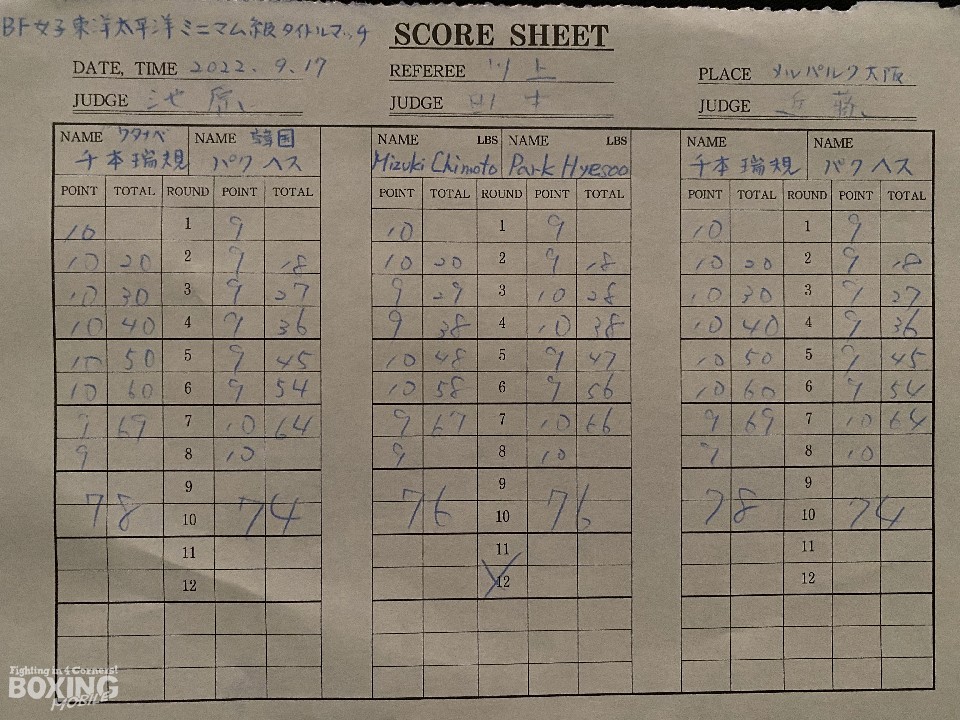 BF女子東洋太平洋ミニマム級タイトルマッチ
SCORE SHEET
DATE, TIME 2022.9.17 REFEREE 川上 PLACE メルパルク大阪
JUDGE 池原 JUDGE JUDGE 近藤
NAME ワタナベ NAME 韓国 NAME LBS NAME LBS NAME NAME
千本瑞規 パクヘス Mizuki Chimoto Park Hyesoo 千本瑞規 パクヘス
POINT TOTAL ROUND POINT TOTAL POINT TOTAL ROUND POINT TOTAL POINT TOTAL ROUND POINT TOTAL
10 1 9 10 1 9 10 1 9
10 20 2 9 18 10 20 2 9 18 10 20 2 9 18
10 30 3 9 27 9 29 3 10 28 10 30 3 9 27
10 40 4 9 36 9 38 4 10 38 10 40 4 9 36
10 50 5 9 45 10 48 5 9 47 10 50 5 9 45
10 60 6 9 54 10 58 6 9 56 10 60 6 9 54
9 69 7 10 64 9 67 7 10 66 9 69 7 10 64
9 8 10 9 8 10 9 8 10
9 9 9
78 10 74 76 10 76 78 10 74
11 11 11
12 12 12
Fighting in 4 Corners!
BOXING
MOBILE